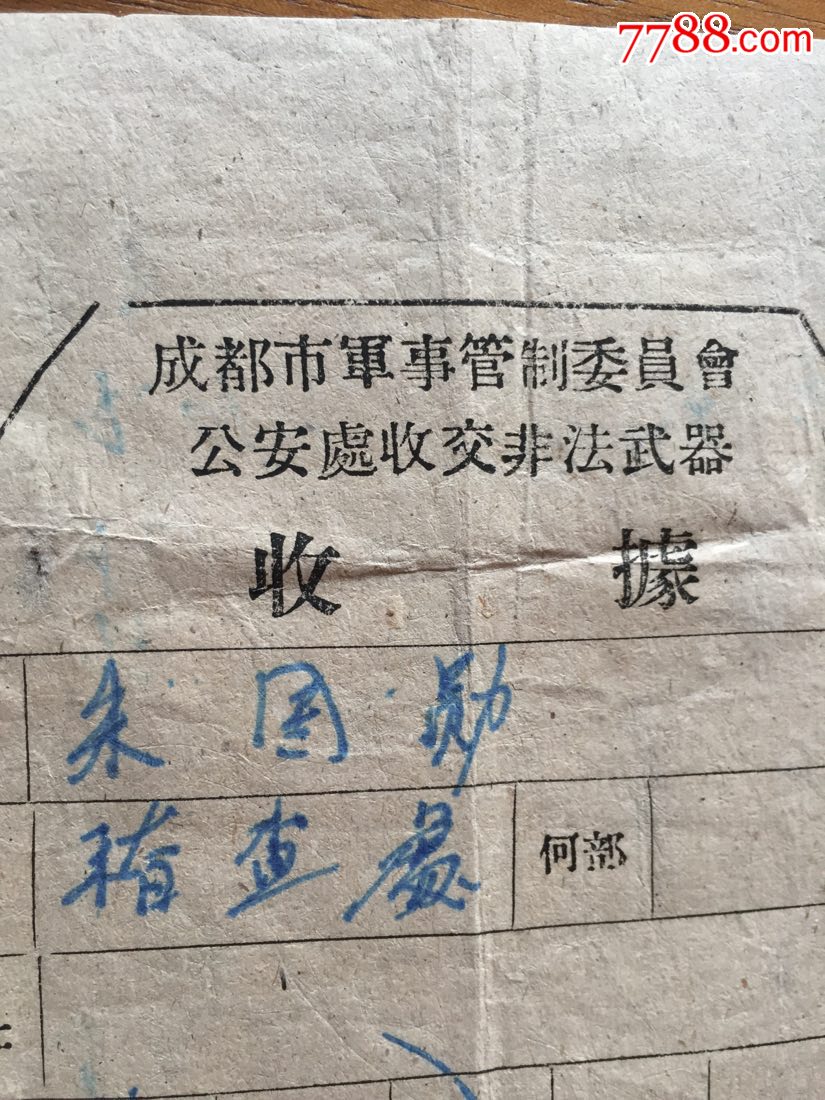 7788.com
成都市軍事管制委員會
公安處收交非法武器
收據
朱國勛
稽查處 何部